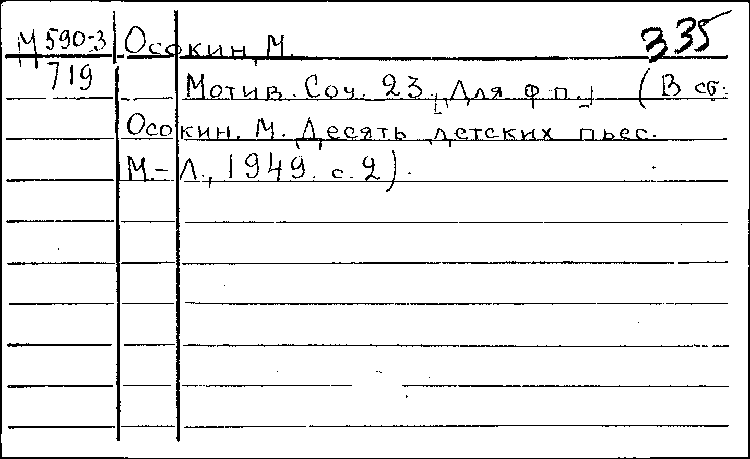 М 590-3 Осокин, М. 335
719
Мотив. Соч. 23. [Для ф.п.] (В сб.:
Осокин. М. Десять детских пьес.
М.-Л., 1949. с. 2).